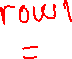 row1
=